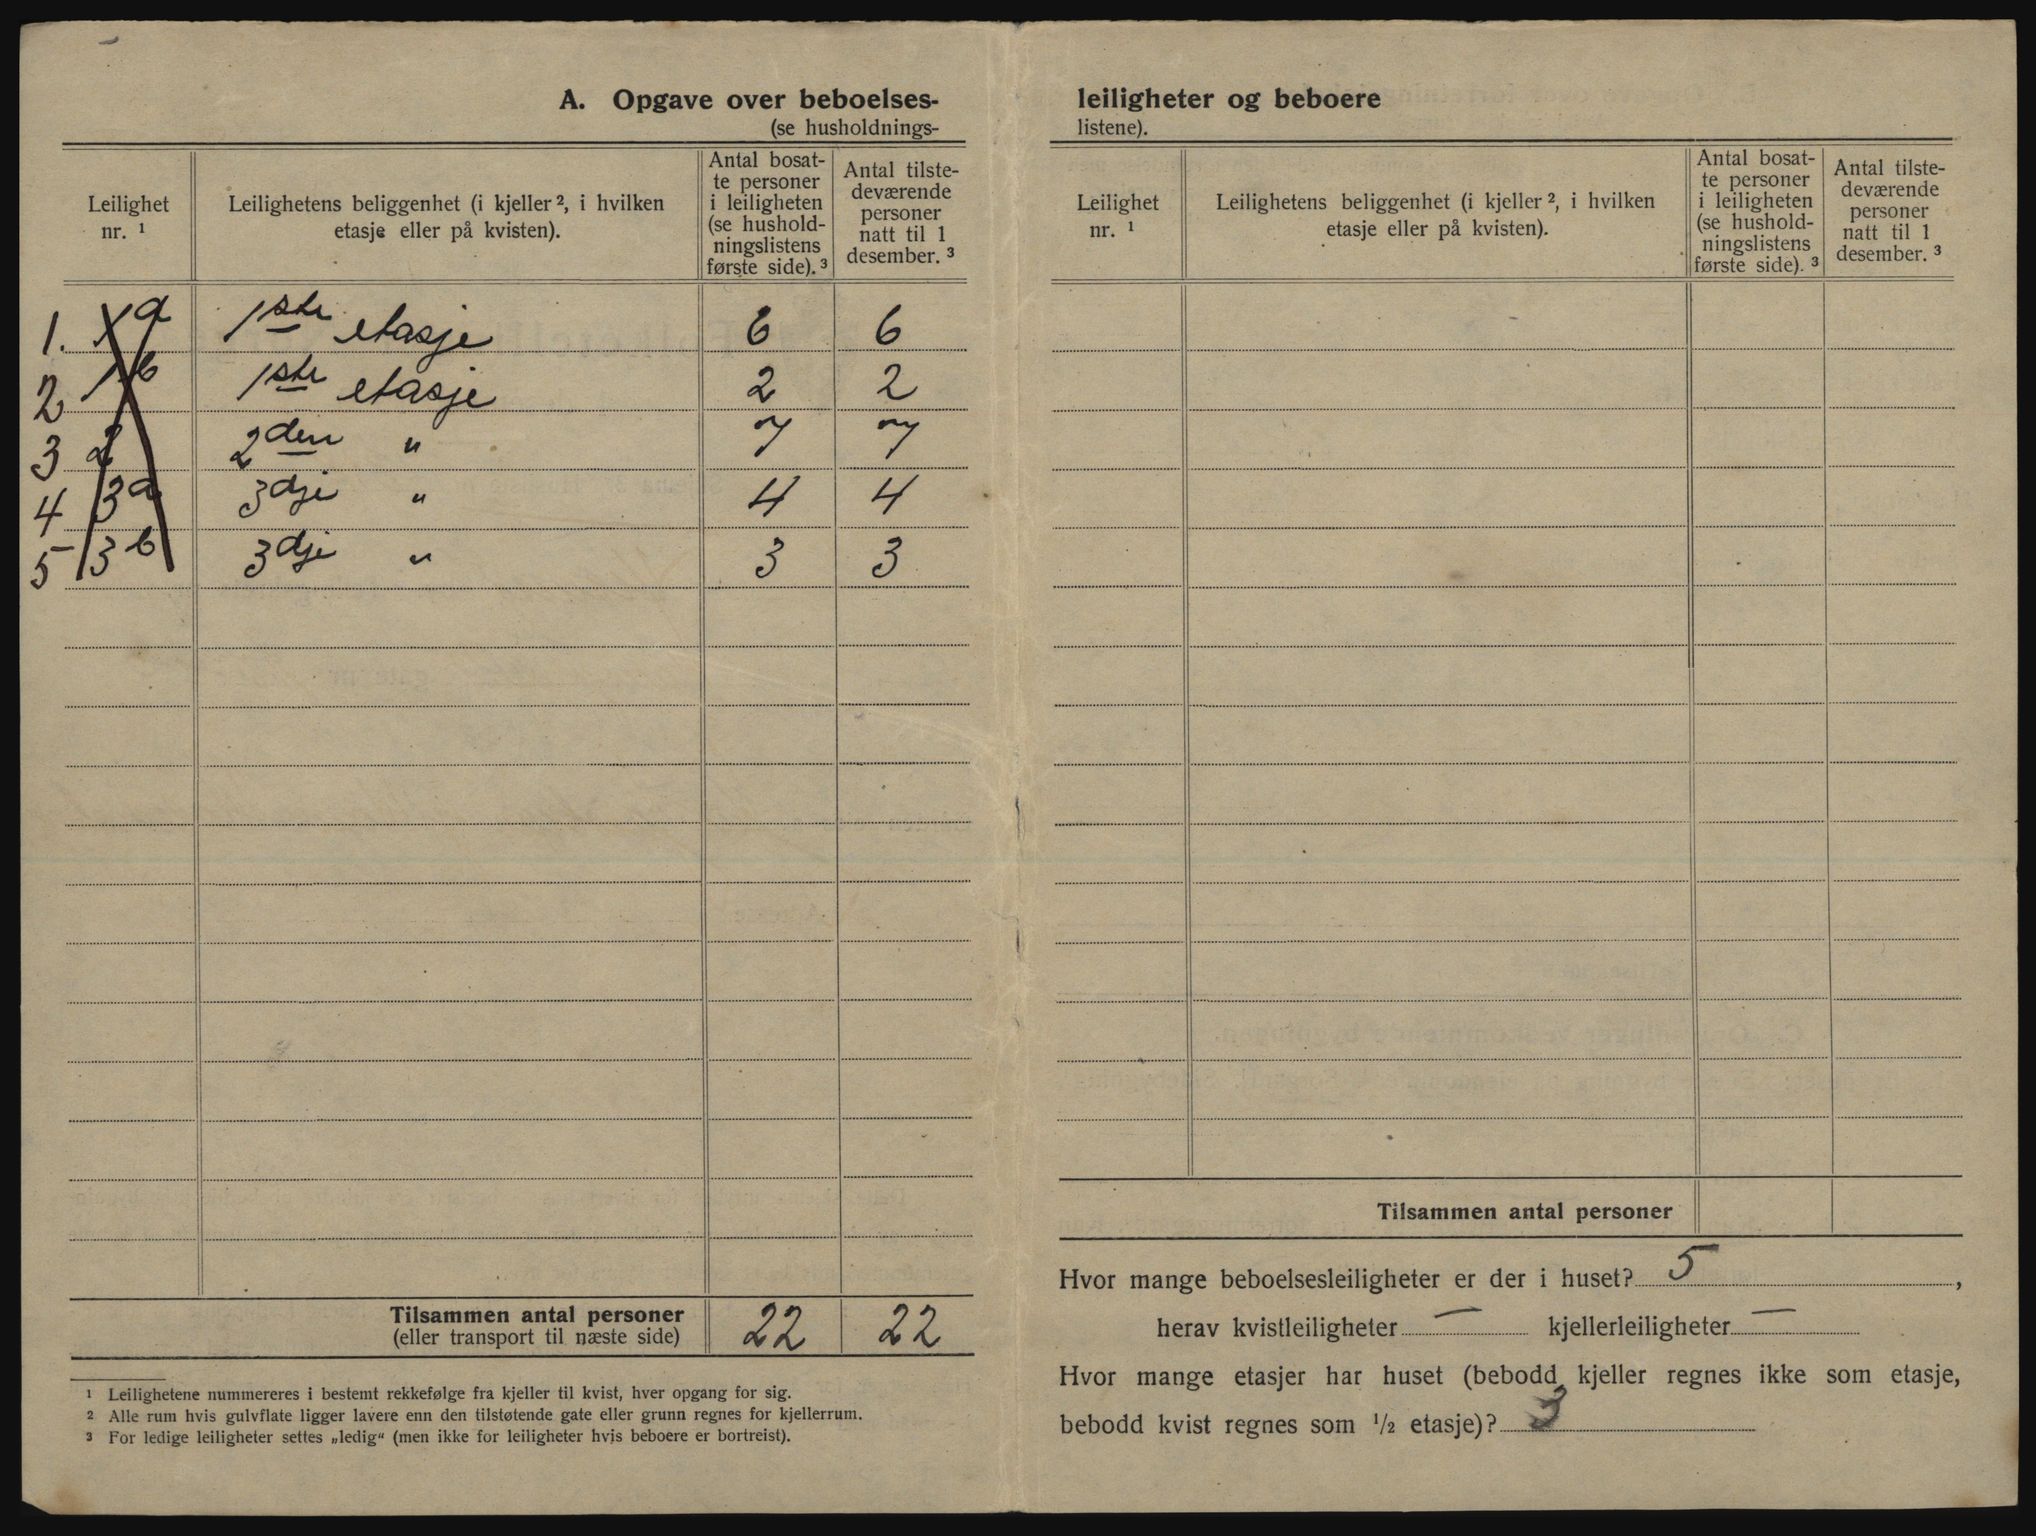 A. Opgave over beboelses-
(se husholdnings-
Leilighet
nr. ¹
Leilighetens beliggenhet (i kjeller ², i hvilken
etasje eller på kvisten).
Antal bosat-
te personer
i leiligheten
(se hushold-
ningslistens
første side). ³
Antal tilste-
deværende
personer
natt til 1
desember. ³
1. 1a 1ste etasje 6 6
2 1b 1ste etasje 2 2
3 2 2den " 7 7
4 3a 3dje " 4 4
5 3b 3dje " 3 3
Tilsammen antal personer
(eller transport til næste side)
22 22
¹ Leilighetene nummereres i bestemt rekkefølge fra kjeller til kvist, hver opgang for sig.
² Alle rum hvis gulvflate ligger lavere enn den tilstøtende gate eller grunn regnes for kjellerrum.
³ For ledige leiligheter settes „ledig“ (men ikke for leiligheter hvis beboere er bortreist).
leiligheter og beboere
listene).
Leilighet
nr. ¹
Leilighetens beliggenhet (i kjeller ², i hvilken
etasje eller på kvisten).
Antal bosat-
te personer
i leiligheten
(se hushold-
ningslistens
første side). ³
Antal tilste-
deværende
personer
natt til 1
desember. ³
Tilsammen antal personer
Hvor mange beboelsesleiligheter er der i huset? 5,
herav kvistleiligheter — kjellerleiligheter —
Hvor mange etasjer har huset (bebodd kjeller regnes ikke som etasje,
bebodd kvist regnes som ½ etasje)? 3